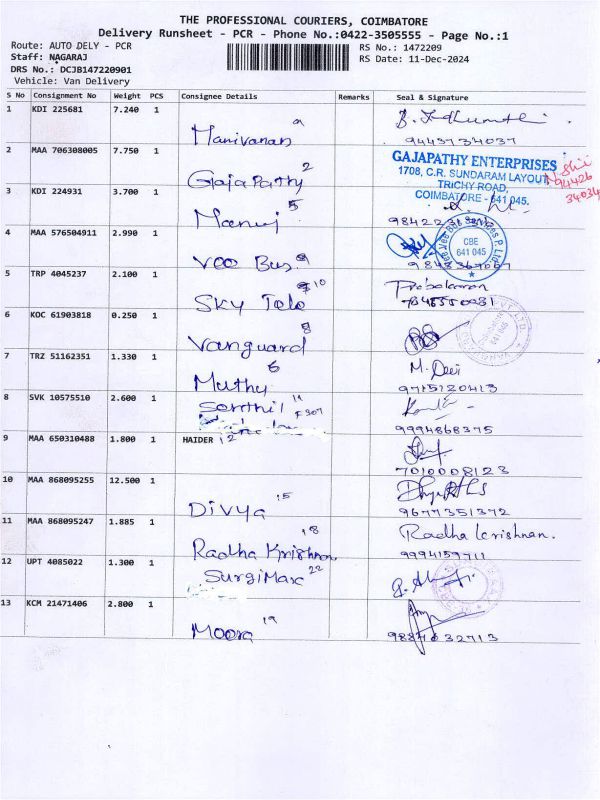 THE PROFESSIONAL COURIERS, COIMBATORE
Delivery Runsheet - PCR - Phone No.:0422-3505555 - Page No.:1
Route: AUTO DELY - PCR
RS No.: 1472209
Staff: NAGARAJ
RS Date: 11-Dec-2024
DRS No.: DCJB147220901
Vehicle: Van Delivery
S No Consignment No Weight PCS Consignee Details Remarks Seal & Signature
1 KDI 225681 7.240 1
Manivanan 9443734037
2 MAA 706308005 7.750 1
GajaPathy 2
GAJAPATHY ENTERPRISES
1708, C.R. SUNDARAM LAYOUT
TRICHY ROAD,
COIMBATORE - 641 045.
94426
34034
3 KDI 224931 3.700 1
Manuj 5
4 MAA 576504911 2.990 1
Vee Bus
CBE
641 045
5 TRP 4045237 2.100 1
Sky Tele 10
6 KOC 61903818 0.250 1
Vanguard 8
7 TRZ 51162351 1.330 1
Muthu 6 M. Devi
9715120413
8 SVK 10575510 2.600 1
Senthil
9994868375
9 MAA 650310488 1.800 1 HAIDER 12
7010008123
10 MAA 868095255 12.500 1
Divya 15 9677351372
11 MAA 868095247 1.885 1
Radha Krishnan 18 Radha krishnan.
9994159711
12 UPT 4085022 1.300 1
SurgiMax 22
13 KCM 21471406 2.800 1
Moora 19